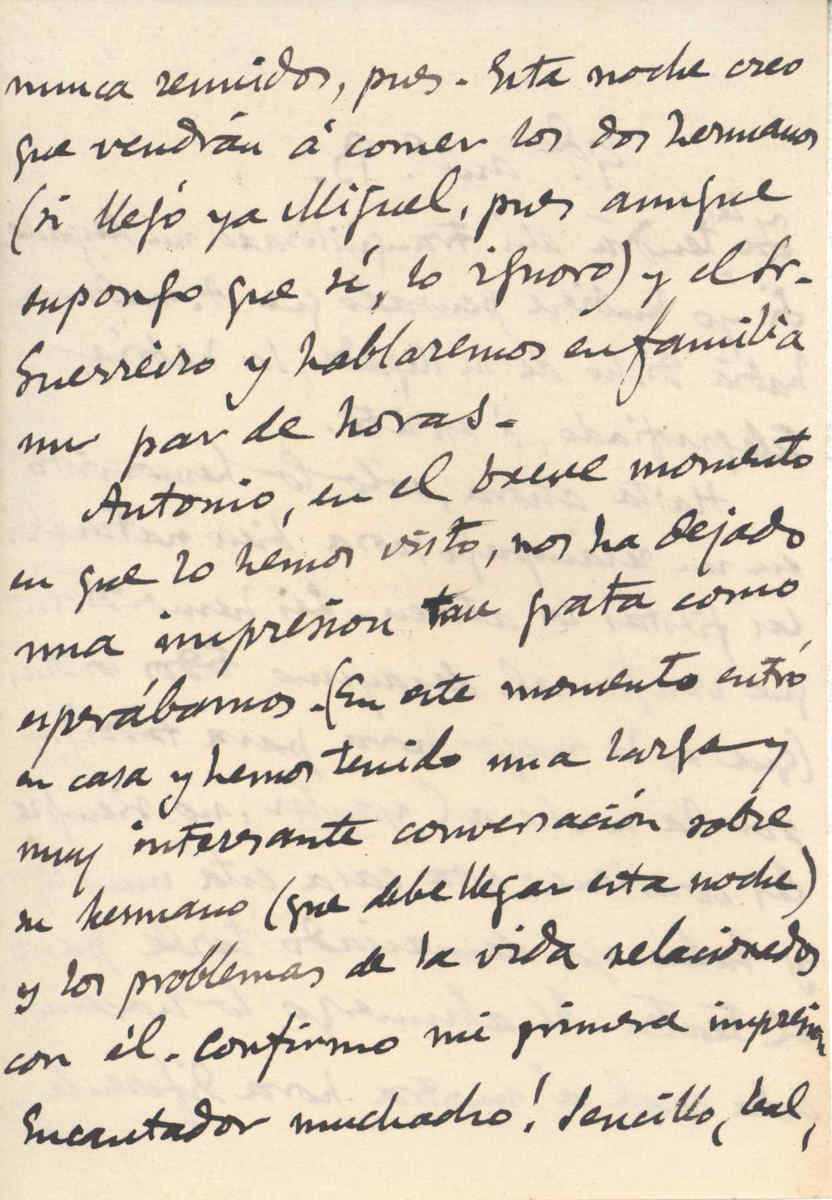 nunca reunidos, pues. Esta noche creo
que vendrán á comer los dos hermanos
(si llegó ya Miguel, pues aunque
supongo que sí, lo ignoro) y el Sr.
Guerreiro y hablaremos en familia
un par de horas.
Antonio, en el breve momento
en que lo hemos visto, nos ha dejado
una impresion tan grata como
esperábamos. (En este momento entró
en casa y hemos tenido una larga y
muy interesante conversación sobre
su hermano (que debe llegar esta noche)
y los problemas de la vida relacionados
con él. Confirmo mi primera impresion
Encantador muchacho! Sencillo, leal,